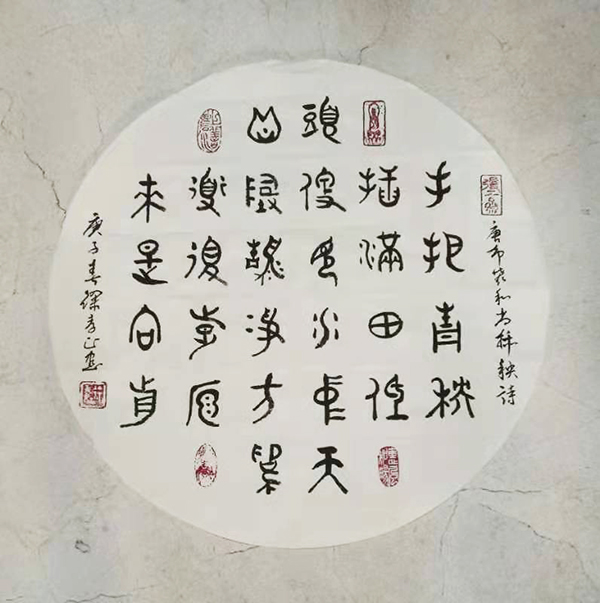 唐布袋和尚插秧詩
手把青秧
插滿田低
頭便見水中天
心地清淨方為
道退步原
來是向前
庚子春書